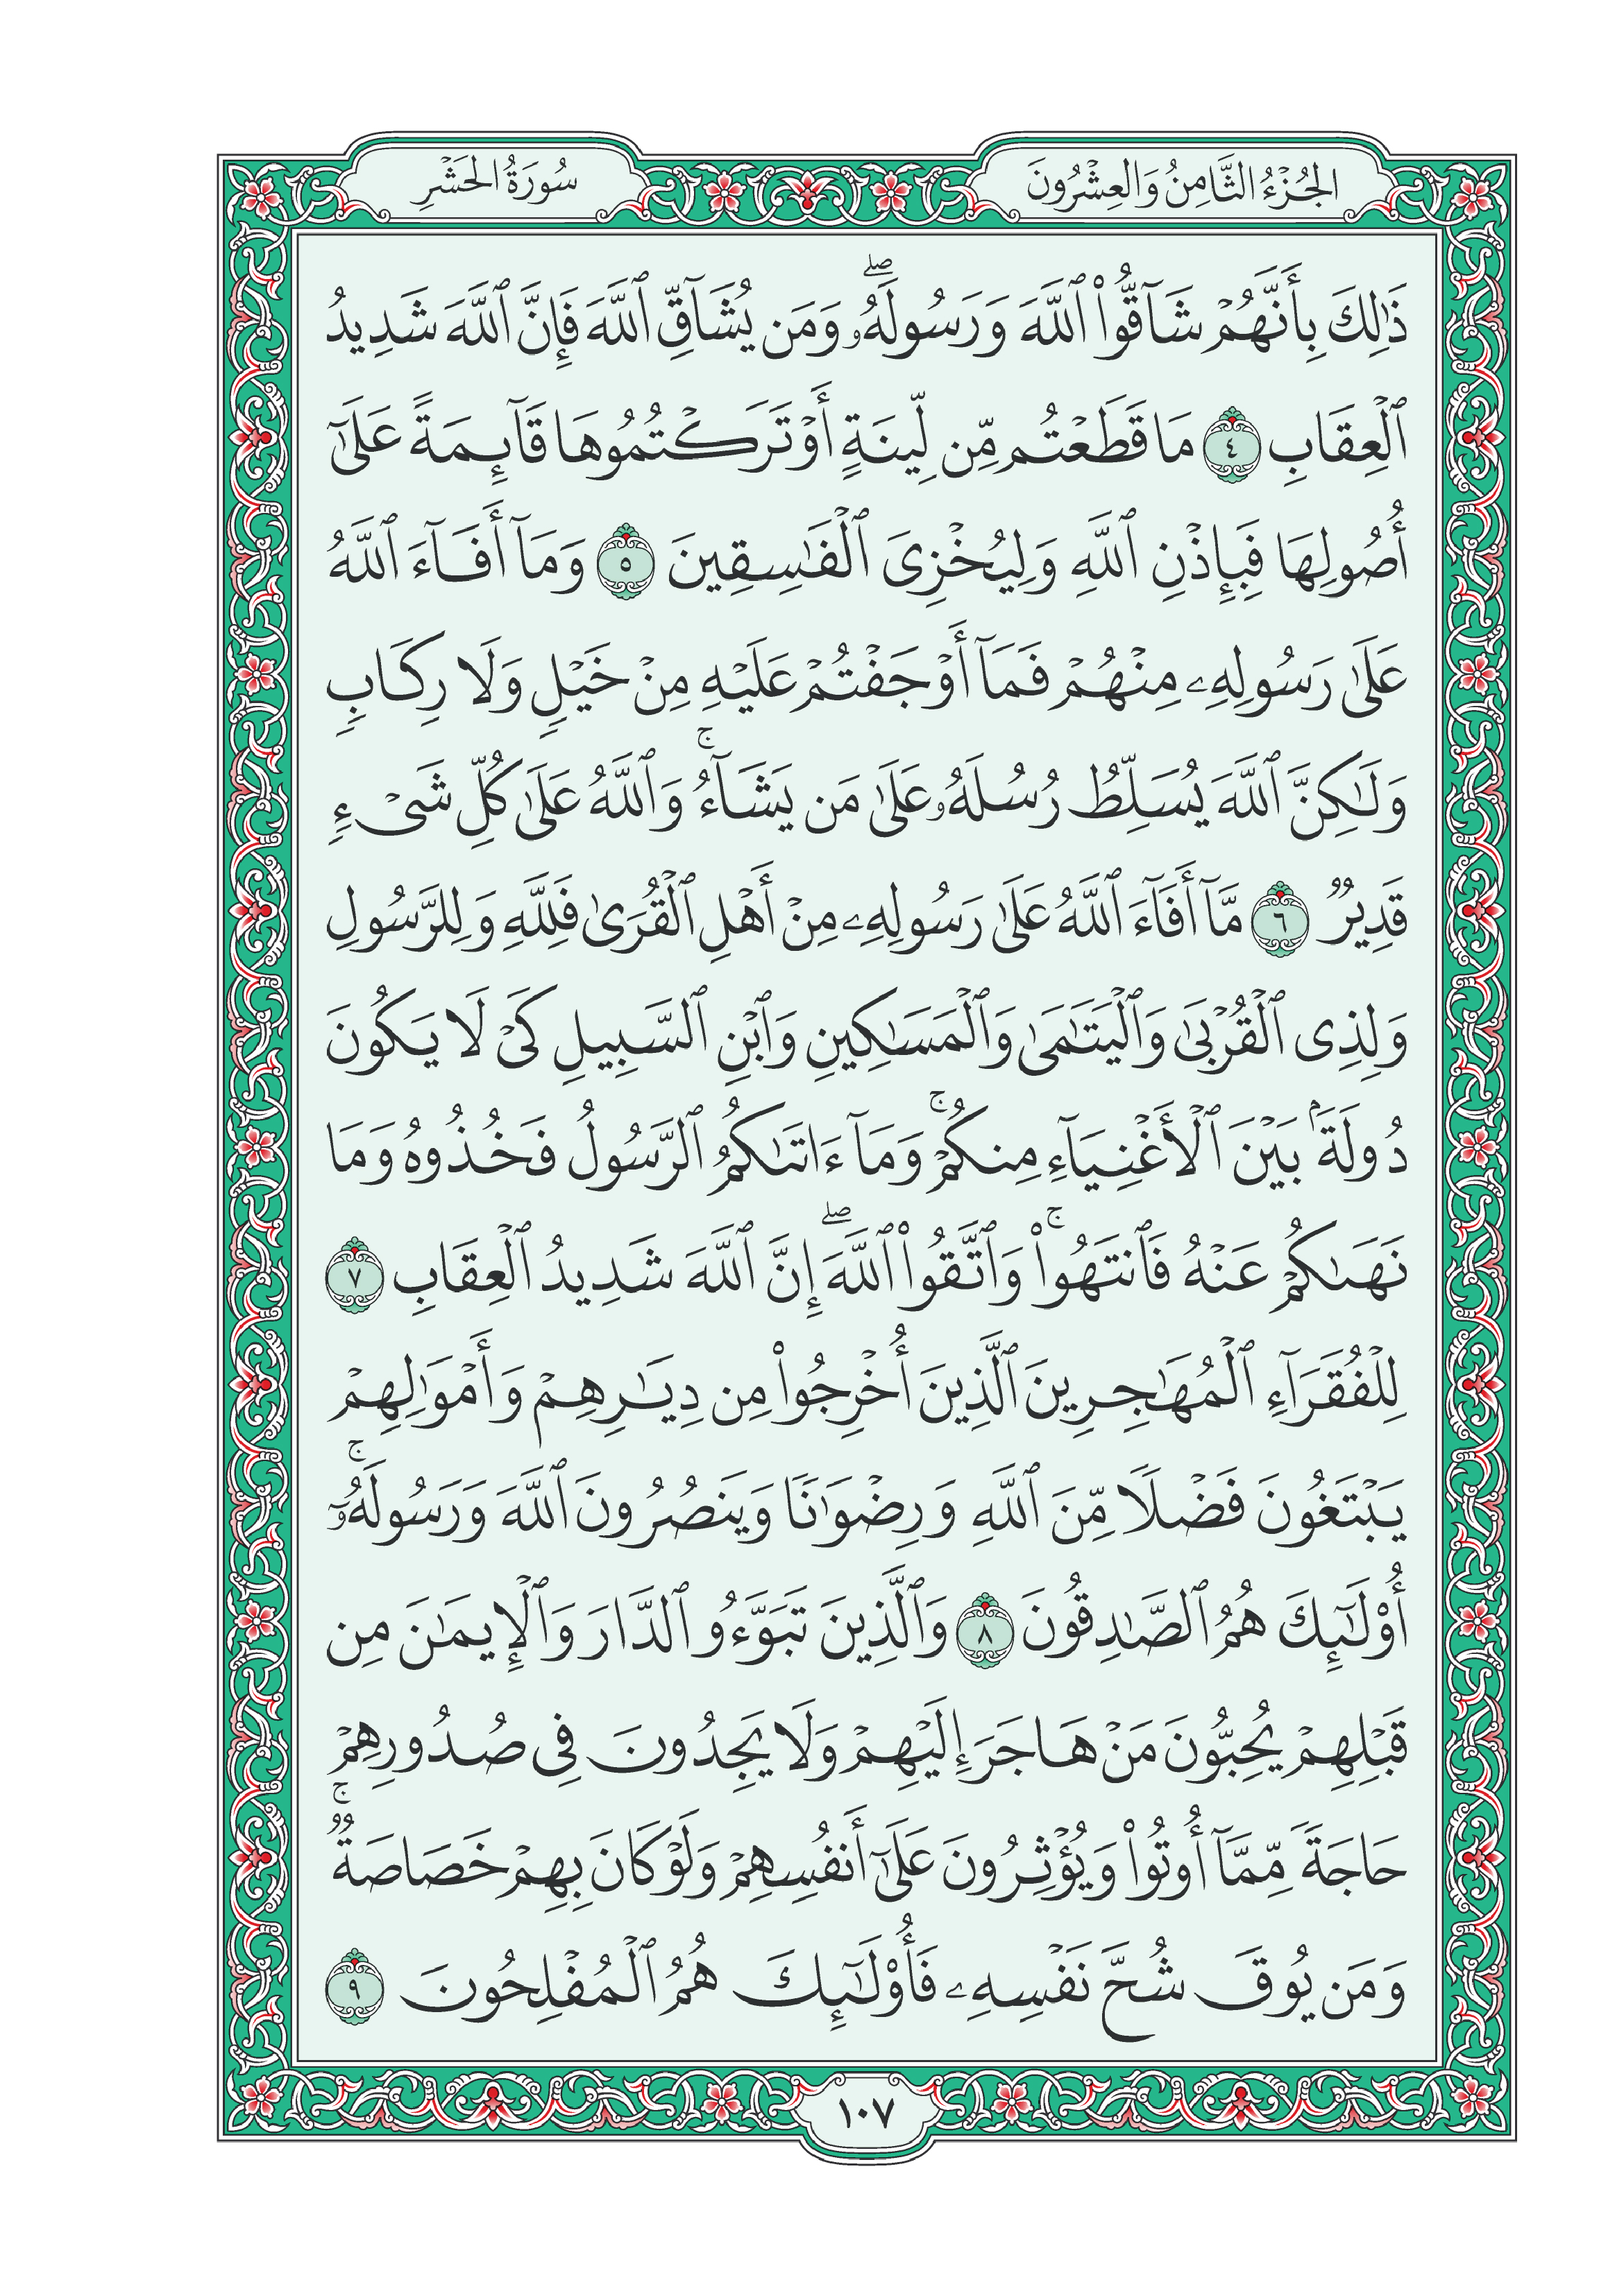 الجُزْءُ الثَّامِنُ وَالعِشْرُونَ
سُورَةُ الحَشْرِ
ذَٰلِكَ بِأَنَّهُمْ شَآقُّوا۟ ٱللَّهَ وَرَسُولَهُۥۖ وَمَن يُشَآقِّ ٱللَّهَ فَإِنَّ ٱللَّهَ شَدِيدُ
ٱلْعِقَابِ ٤ مَا قَطَعْتُم مِّن لِّينَةٍ أَوْ تَرَكْتُمُوهَا قَآئِمَةً عَلَىٰٓ
أُصُولِهَا فَبِإِذْنِ ٱللَّهِ وَلِيُخْزِىَ ٱلْفَٰسِقِينَ ٥ وَمَآ أَفَآءَ ٱللَّهُ
عَلَىٰ رَسُولِهِۦ مِنْهُمْ فَمَآ أَوْجَفْتُمْ عَلَيْهِ مِنْ خَيْلٍ وَلَا رِكَابٍ
وَلَٰكِنَّ ٱللَّهَ يُسَلِّطُ رُسُلَهُۥ عَلَىٰ مَن يَشَآءُۚ وَٱللَّهُ عَلَىٰ كُلِّ شَىْءٍ
قَدِيرٌ ٦ مَّآ أَفَآءَ ٱللَّهُ عَلَىٰ رَسُولِهِۦ مِنْ أَهْلِ ٱلْقُرَىٰ فَلِلَّهِ وَلِلرَّسُولِ
وَلِذِى ٱلْقُرْبَىٰ وَٱلْيَتَٰمَىٰ وَٱلْمَسَٰكِينِ وَٱبْنِ ٱلسَّبِيلِ كَىْ لَا يَكُونَ
دُولَةَۢ بَيْنَ ٱلْأَغْنِيَآءِ مِنكُمْۚ وَمَآ ءَاتَىٰكُمُ ٱلرَّسُولُ فَخُذُوهُ وَمَا
نَهَىٰكُمْ عَنْهُ فَٱنتَهُوا۟ۚ وَٱتَّقُوا۟ ٱللَّهَۖ إِنَّ ٱللَّهَ شَدِيدُ ٱلْعِقَابِ ٧
لِلْفُقَرَآءِ ٱلْمُهَٰجِرِينَ ٱلَّذِينَ أُخْرِجُوا۟ مِن دِيَٰرِهِمْ وَأَمْوَٰلِهِمْ
يَبْتَغُونَ فَضْلًا مِّنَ ٱللَّهِ وَرِضْوَٰنًا وَيَنصُرُونَ ٱللَّهَ وَرَسُولَهُۥٓۚ
أُو۟لَٰٓئِكَ هُمُ ٱلصَّٰدِقُونَ ٨ وَٱلَّذِينَ تَبَوَّءُو ٱلدَّارَ وَٱلْإِيمَٰنَ مِن
قَبْلِهِمْ يُحِبُّونَ مَنْ هَاجَرَ إِلَيْهِمْ وَلَا يَجِدُونَ فِى صُدُورِهِمْ
حَاجَةً مِّمَّآ أُوتُوا۟ وَيُؤْثِرُونَ عَلَىٰٓ أَنفُسِهِمْ وَلَوْ كَانَ بِهِمْ خَصَاصَةٌۚ
وَمَن يُوقَ شُحَّ نَفْسِهِۦ فَأُو۟لَٰٓئِكَ هُمُ ٱلْمُفْلِحُونَ ٩
١٠٧